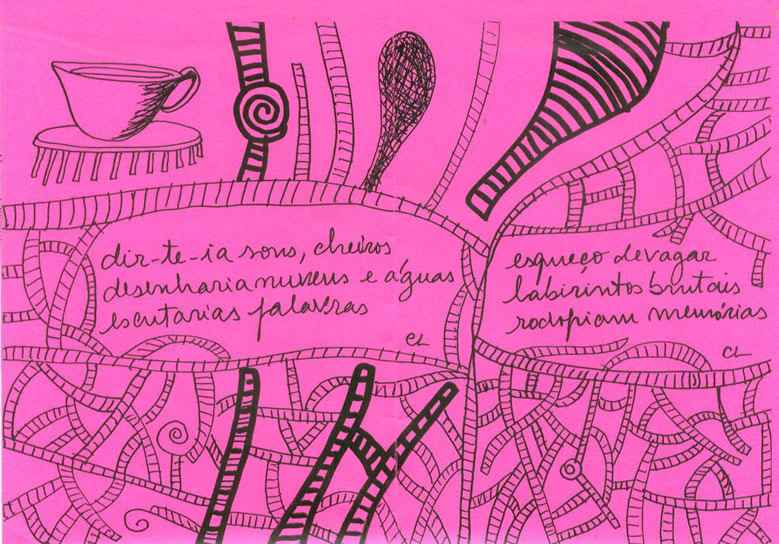 dir-te-ia sons, cheiros
desenharia nuvens e águas
escutarias palavras
CL
esqueço devagar
labirintos brutais
rodopiam memórias
CL